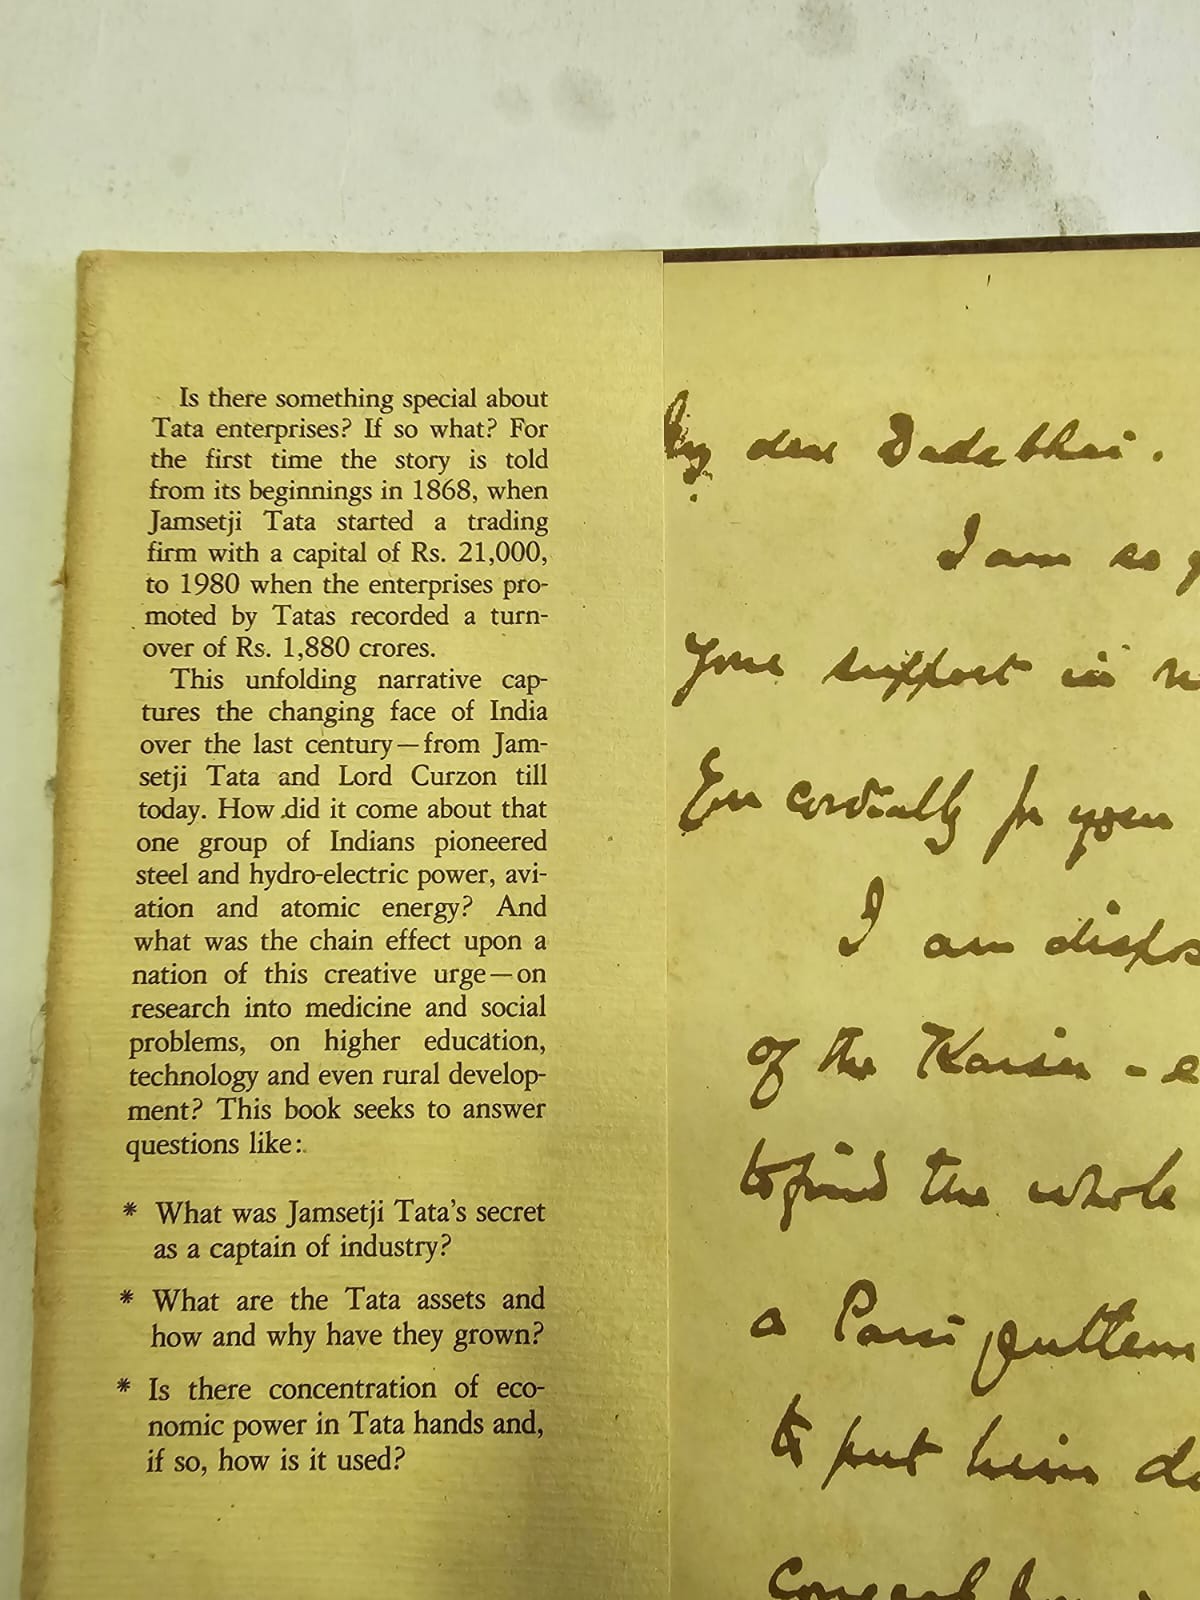 Is there something special about
Tata enterprises? If so what? For
the first time the story is told
from its beginnings in 1868, when
Jamsetji Tata started a trading
firm with a capital of Rs. 21,000,
to 1980 when the enterprises pro-
moted by Tatas recorded a turn-
over of Rs. 1,880 crores.
This unfolding narrative cap-
tures the changing face of India
over the last century—from Jam-
setji Tata and Lord Curzon till
today. How did it come about that
one group of Indians pioneered
steel and hydro-electric power, avi-
ation and atomic energy? And
what was the chain effect upon a
nation of this creative urge—on
research into medicine and social
problems, on higher education,
technology and even rural develop-
ment? This book seeks to answer
questions like:
* What was Jamsetji Tata's secret
as a captain of industry?
* What are the Tata assets and
how and why have they grown?
* Is there concentration of eco-
nomic power in Tata hands and,
if so, how is it used?
My dear Dadabhai.
I am so
your support in
cordially for your
I am
of the
the whole
a Parsi
to put him